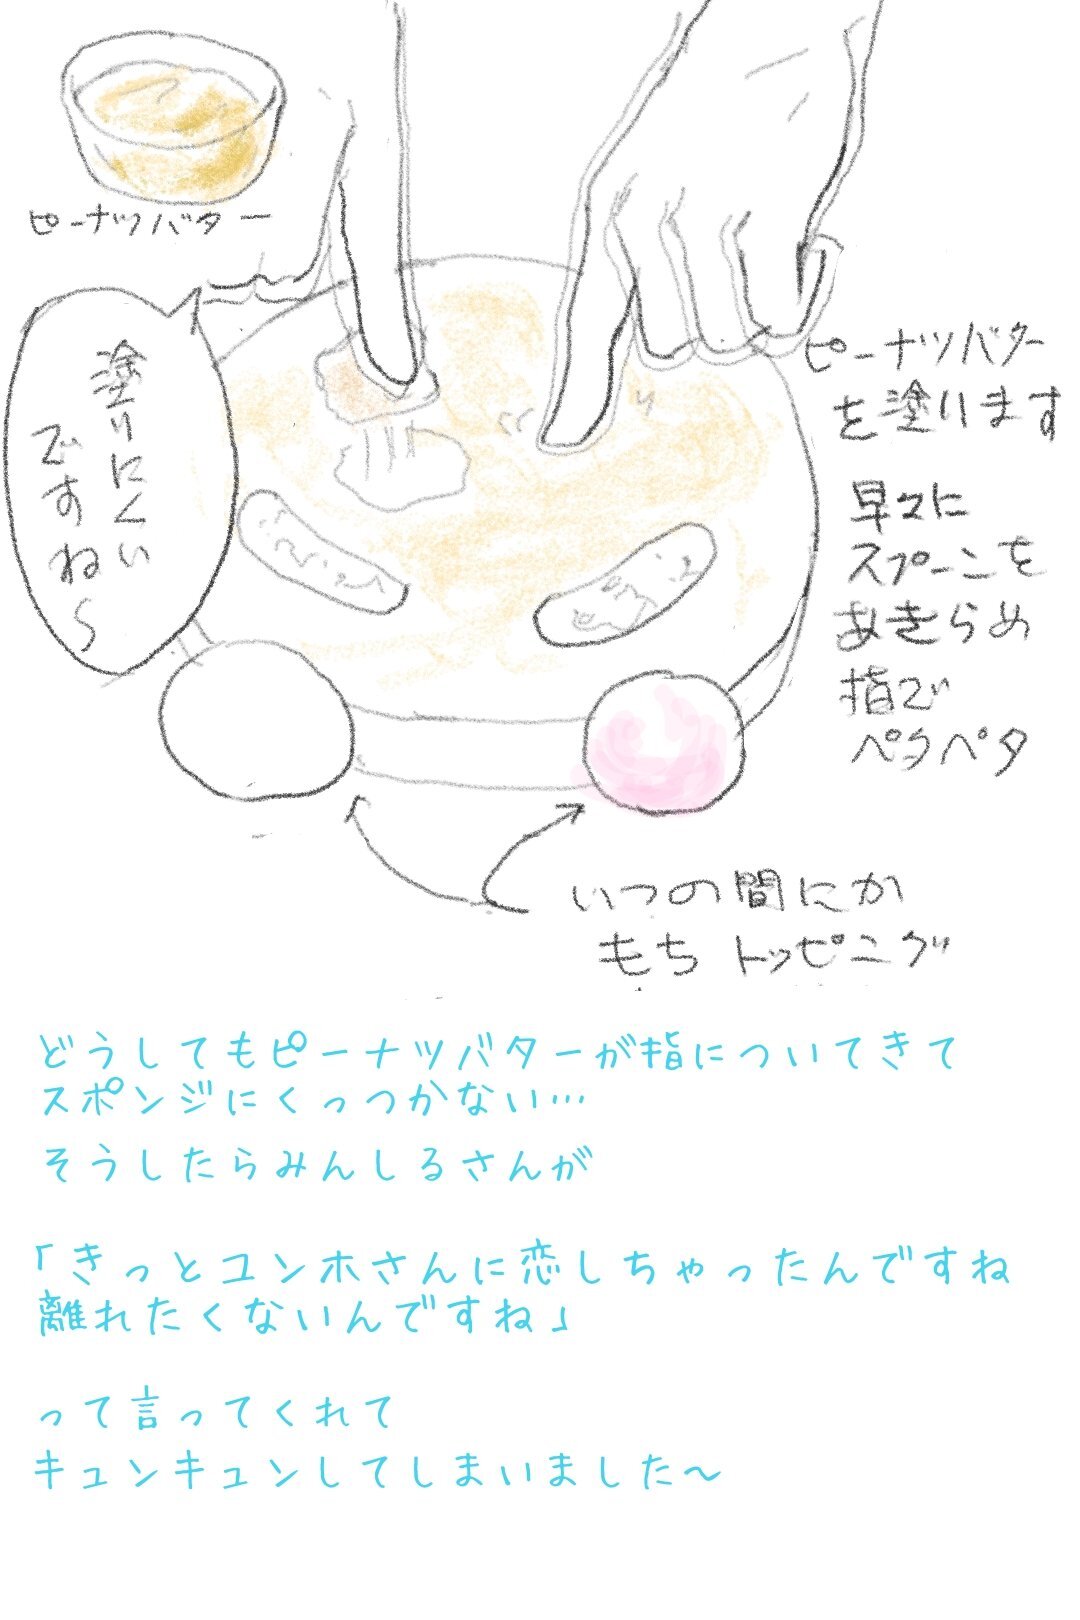 ピーナツバター
塗りにくい
ですね〜
ピーナツバター
を塗ります
早々に
スプーンを
あきらめ
指で
ペタペタ
いつの間にか
もちトッピング
どうしてもピーナツバターが指についてきて
スポンジにくっつかない…
そうしたらみんしるさんが
「きっとユンホさんに恋しちゃったんですね
離れたくないんですね」
って言ってくれて
キュンキュンしてしまいました〜